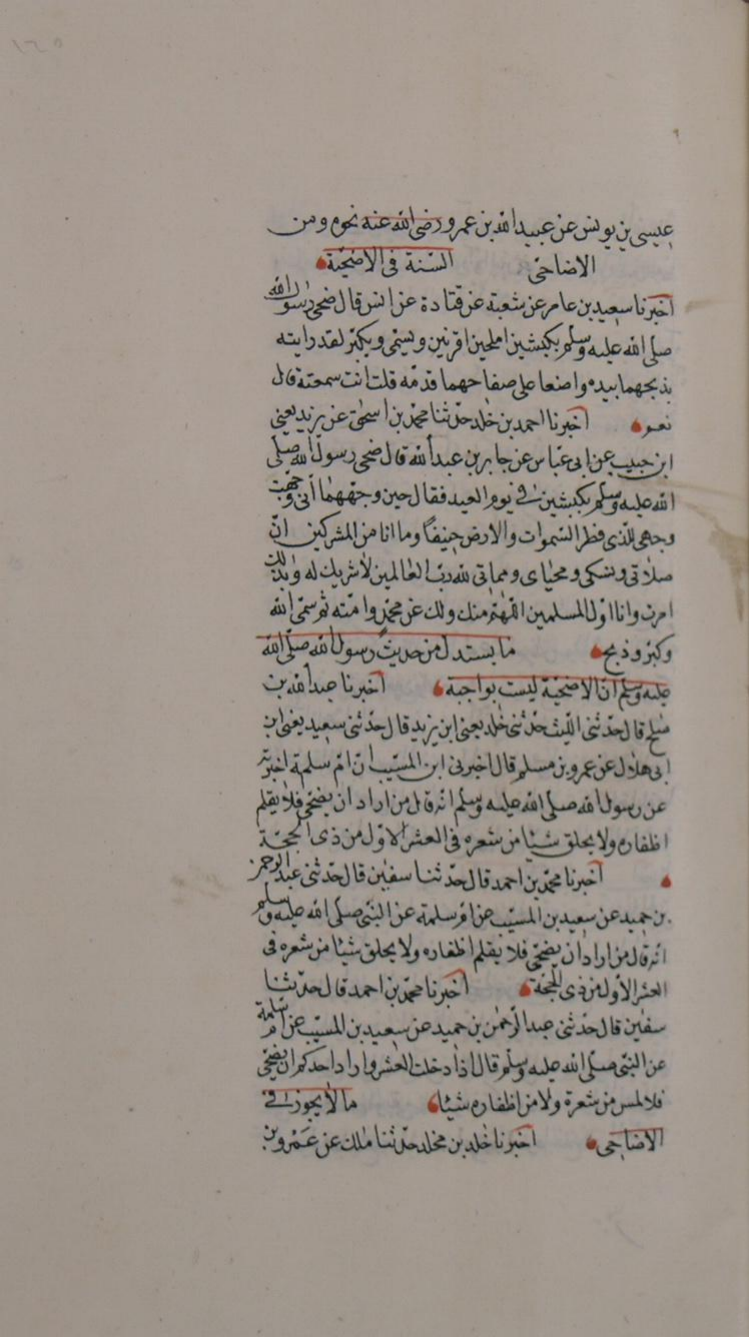 ١٦٥
عيسى بن يونس عن عبيد الله بن عمرو رضى الله عنه نحوه ومن
الاضاحى السنة فى الاضحية
اخبرنا سعيد بن عامر عن شعبة عن قتادة عن انس قال ضحى رسول الله
صلى الله عليه وسلم بكبشين املحين اقرنين ويسمى ويكبر لقد رايته
يذبحهما بيده واضعا على صفاحهما قدمه قلت انت سمعته قال
نعم اخبرنا احمد بن خلد حدثنا محمد بن اسحق عن يزيد يعنى
ابن حبيب عن ابى عباس عن جابر بن عبد الله قال ضحى رسول الله صلى
الله عليه وسلم بكبشين فى يوم العيد فقال حين وجههما انى وجهت
وجهى للذى فطر السموات والارض حنيفا وما انا من المشركين ان
صلاتى ونسكى ومحياى ومماتى لله رب العالمين لا شريك له وبذلك
امرت وانا اول المسلمين اللهم منك ولك عن محمد وامته ثم سمى الله
وكبر وذبح ما يستدل من حديث رسول الله صلى الله
عليه وسلم ان الاضحية ليست بواجبة اخبرنا عبد الله بن
صلح قال حدثنى الليث حدثنى خلد يعنى ابن يزيد قال حدثنى سعيد يعنى ابن
ابى هلال عن عمرو بن مسلم قال اخبرنى ابن المسيب ان ام سلمة اخبرته
عن رسول الله صلى الله عليه وسلم انه قال من اراد ان يضحى فلا يقلم
اظفاره ولا يحلق شيئا من شعره فى العشر الاول من ذى الحجة
اخبرنا محمد بن احمد قال حدثنا سفين قال حدثنى عبد الرحمن
بن حميد عن سعيد بن المسيب عن ام سلمة عن النبى صلى الله عليه وسلم
انه قال من اراد ان يضحى فلا يقلم اظفاره ولا يحلق شيئا من شعره فى
العشر الاول من ذى الحجة اخبرنا محمد بن احمد قال حدثنا
سفين قال حدثنى عبد الرحمن بن حميد عن سعيد بن المسيب عن ام سلمة
عن النبى صلى الله عليه وسلم قال اذا دخلت العشر واراد احدكم ان يضحى
فلا لمس من شعره ولا من اظفاره شيئا ما لا يجوز فى
الاضاحى اخبرنا خلد بن مخلد حدثنا ملك عن عمرو بن